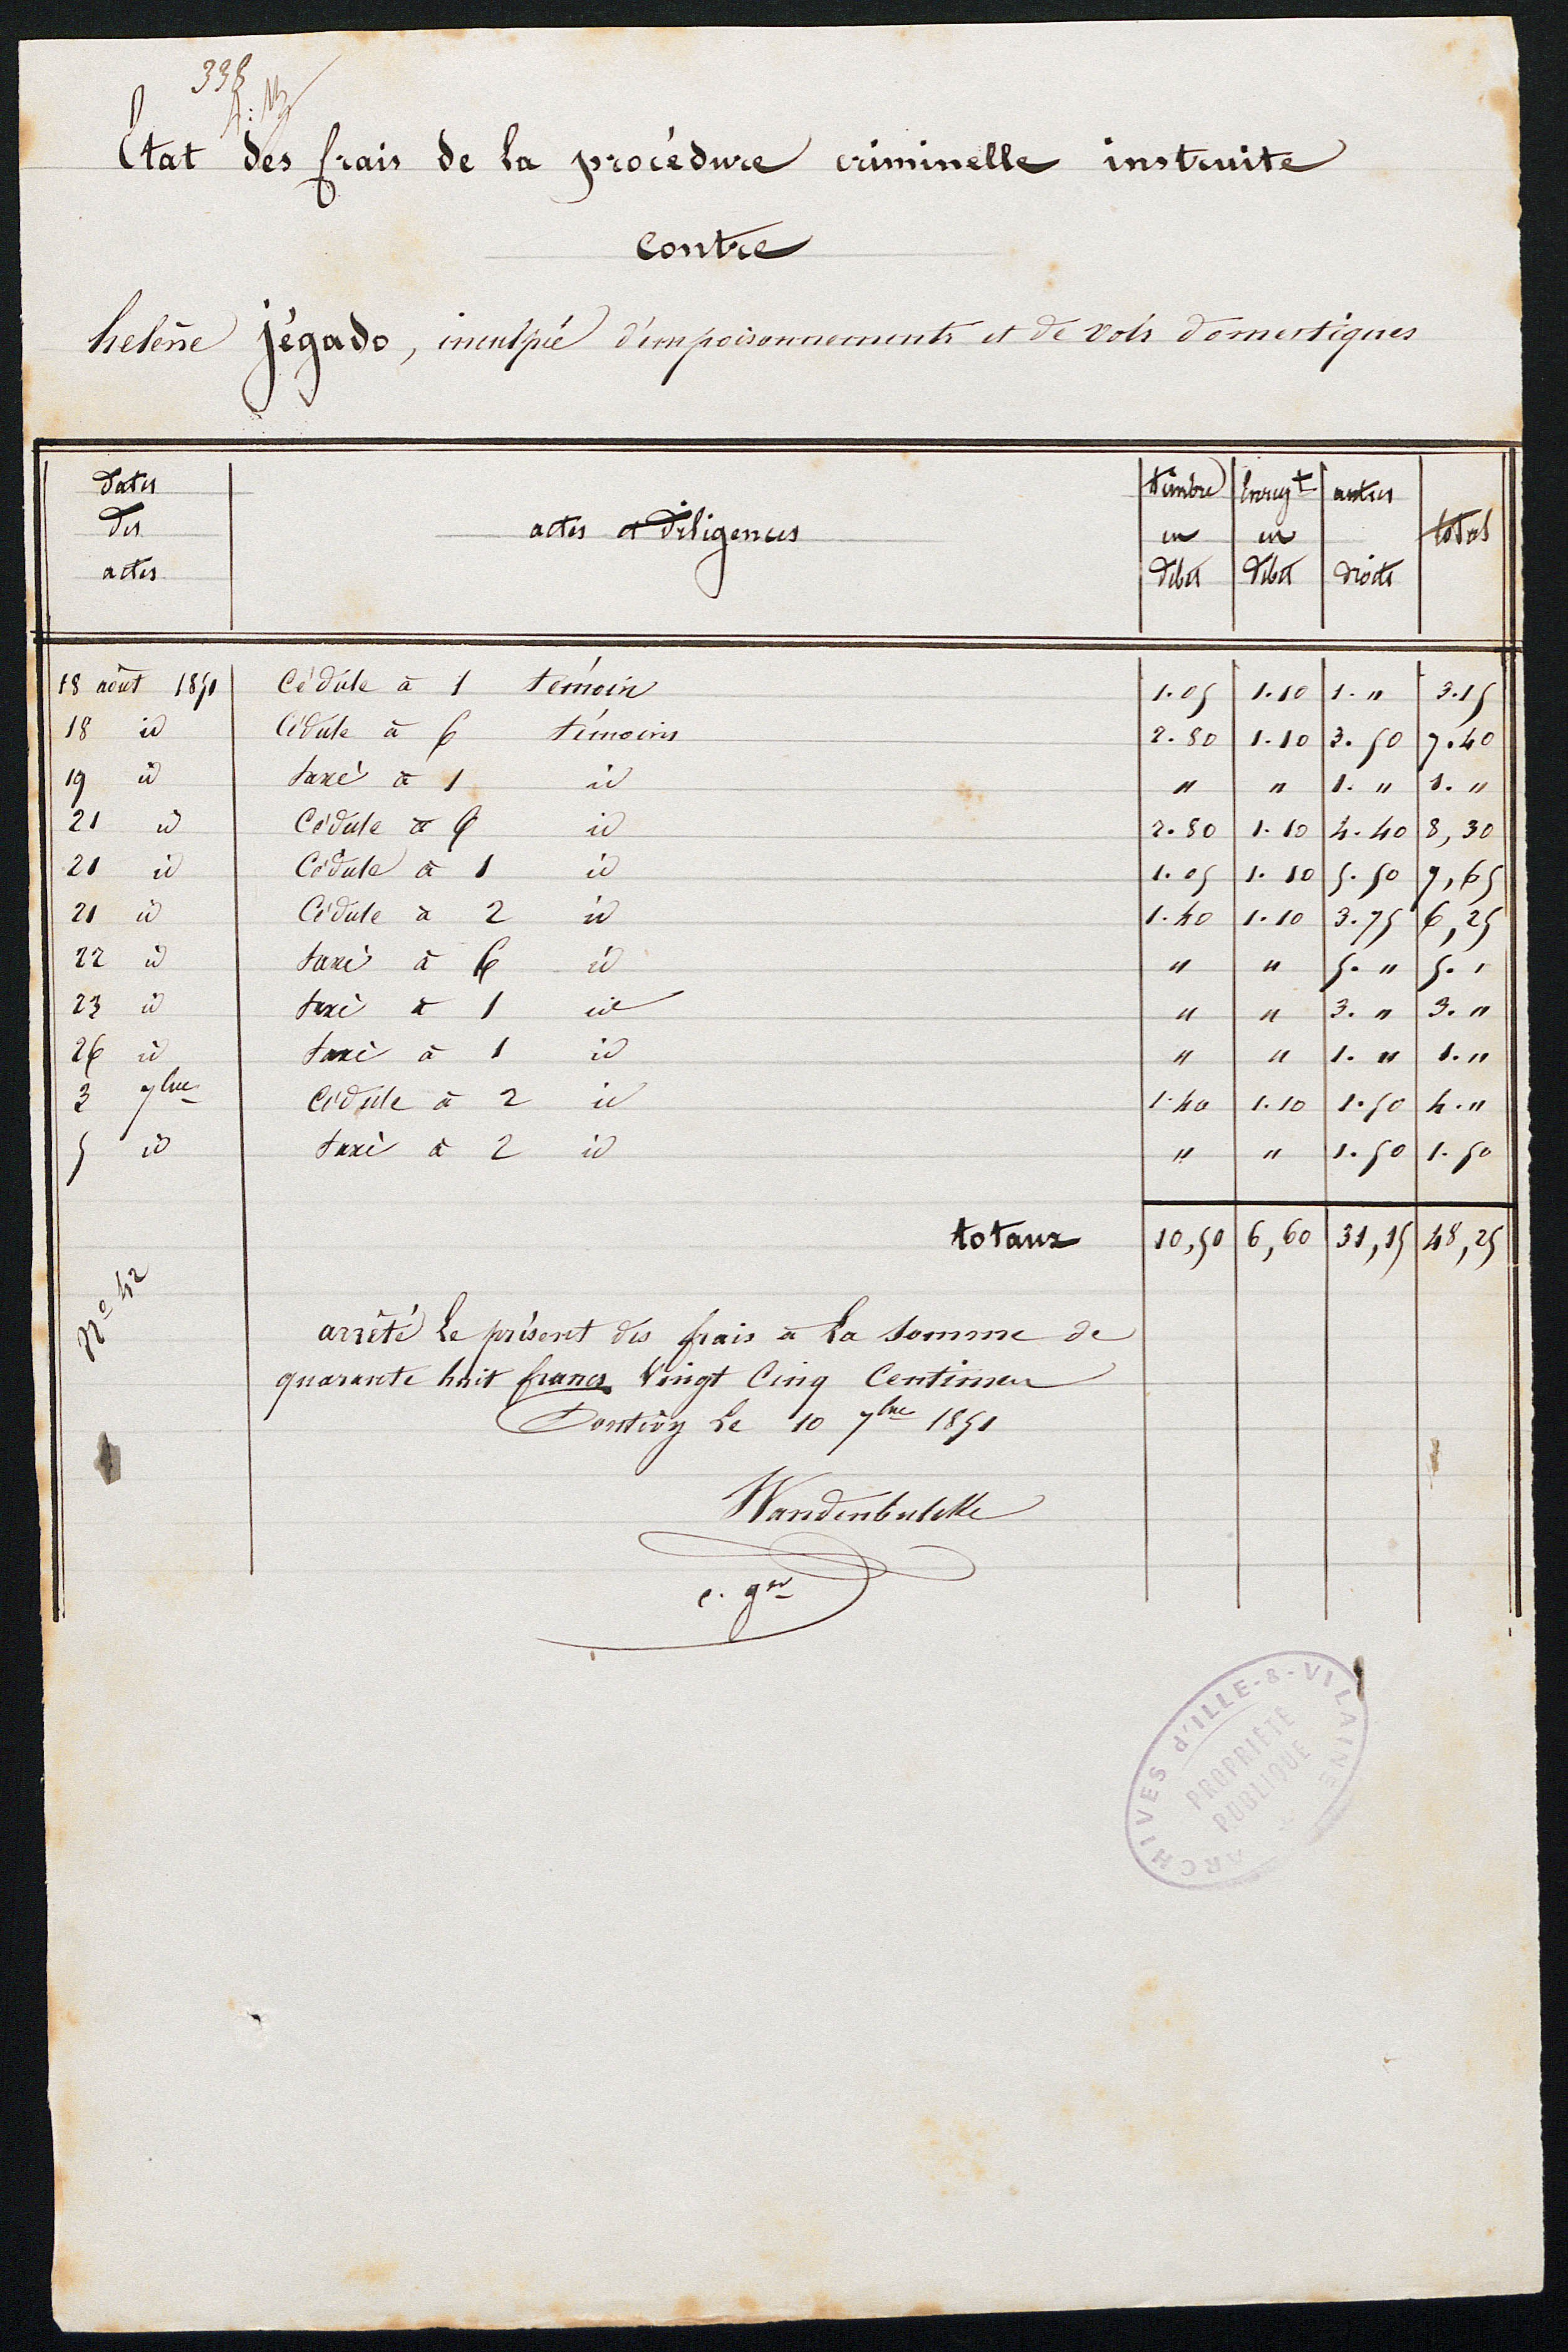 338
État des frais de la procédure criminelle instruite
contre
heleńe jégado, inculpée d'empoisonnements et de vols domestiques
dates des actes | actes et diligences | timbre en débet | Enregt en débet | autres droits | total
18 août 1851 Cédule à 1 témoin 1.05 1.10 1. " 3.15
18 id Cédule à 6 témoins 2.80 1.10 3.50 7.40
19 id taxé à 1 id " " 1. " 1. "
21 id Cédule à 6 id 2.80 1.10 4.40 8,30
21 id Cédule à 1 id 1.05 1.10 5.50 7,65
21 id Cédule à 2 id 1.40 1.10 3.75 6,25
22 id taxé à 6 id " " 5. " 5. "
23 id taxé à 1 id " " 3. " 3. "
26 id taxé à 1 id " " 1. " 1. "
3 7bre Cédule à 2 id 1.40 1.10 1.50 4. "
5 id taxé à 2 id " " 1.50 1.50
totaux 10,50 6,60 31,15 48,25
No 42
arrêté le présent des frais à la somme de
quarante huit francs Vingt Cinq Centimes
Pontivy le 10 7bre 1851
Wandenbulcke
c. ger
ARCHIVES d'ILLE-&-VILAINE
PROPRIÉTÉ
PUBLIQUE